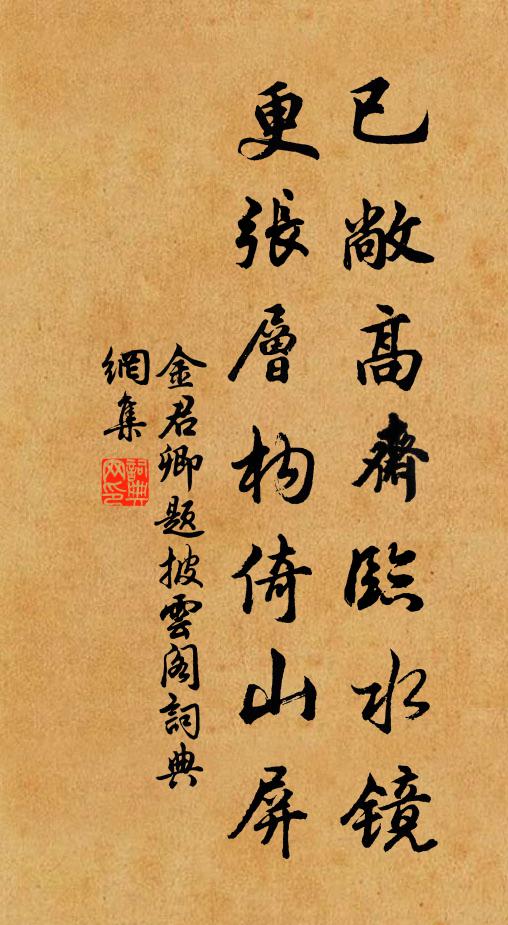 已敞高齋臨水鏡
更張層构倚山屏
金君卿題披雲閣詞典
網集
詞典網印